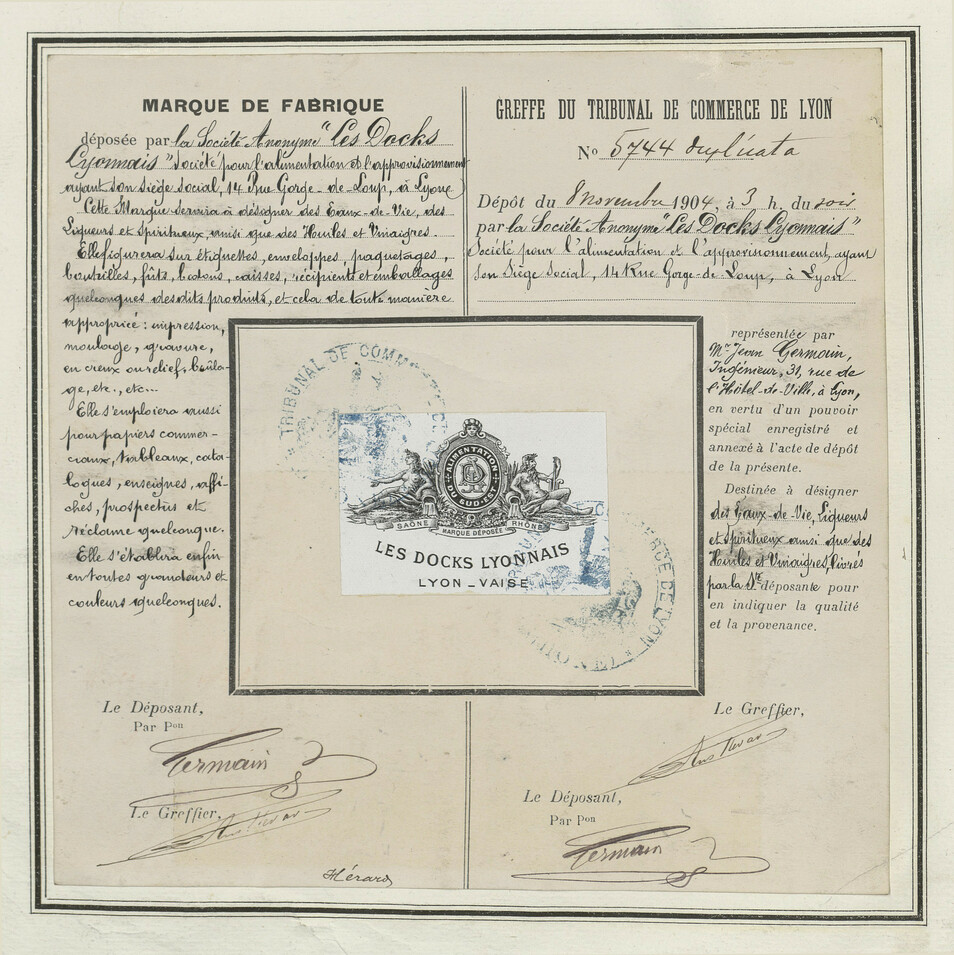 MARQUE DE FABRIQUE
déposée par la Société Anonyme "Les Docks
Lyonnais" Société pour l'alimentation et l'approvisionnement
ayant son siège social, 14 Rue Gorge-de-Loup, à Lyon
Cette Marque servira à désigner des Eaux-de-Vie, des
Liqueurs et Spiritueux, ainsi que des Huiles et Vinaigres.
Elle figurera sur étiquettes, enveloppes, paquetages,
bouteilles, fûts, bidons, caisses, récipients et emballages
quelconques desdits produits, et cela de toute manière
appropriée : impression,
moulage, gravure,
en creux ou relief, coula-
ge, etc., etc...
Elle s'emploiera aussi
pour papiers commer-
ciaux, tableaux, cata-
logues, enseignes, affi-
ches, prospectus et
réclame quelconque.
Elle s'établira enfin
en toutes grandeurs et
couleurs quelconques.
GREFFE DU TRIBUNAL DE COMMERCE DE LYON
No 5744 duplicata
Dépôt du 8 Novembre 1904, à 3 h. du soir
par la Société Anonyme "Les Docks Lyonnais"
Société pour l'alimentation et l'approvisionnement, ayant
son Siège Social, 14 Rue Gorge-de Loup, à Lyon
représentée par
Mr Jean Germain,
Ingénieur, 31, rue de
l'Hôtel-de-Ville, à Lyon,
en vertu d'un pouvoir
spécial enregistré et
annexé à l'acte de dépôt
de la présente.
Destinée à désigner
des Eaux-de-Vie, Liqueurs
et Spiritueux ainsi que des
Huiles et Vinaigres, livrés
par la Sté déposante pour
en indiquer la qualité
et la provenance.
TRIBUNAL DE COMMERCE
ALIMENTATION
DU SUD-EST
SAÔNE RHÔNE
MARQUE DÉPOSÉE
LES DOCKS LYONNAIS
LYON_VAISE
DE LYON
Le Déposant,
Par Pon
Germain
Le Greffier,
Le Greffier,
Le Déposant,
Par Pon
Germain